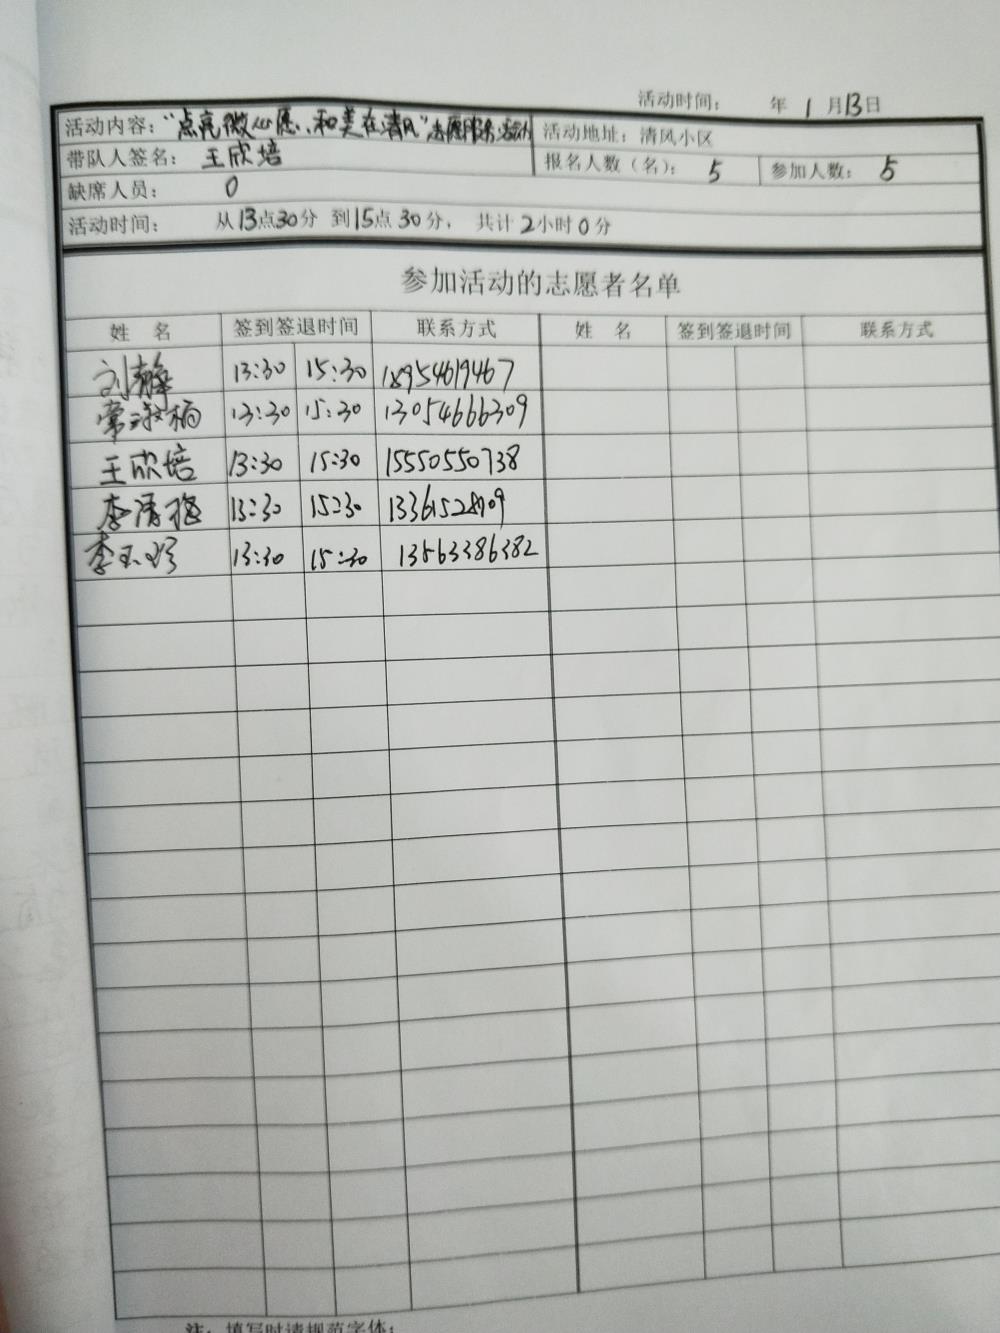 活动时间： 年 1 月 13 日
活动内容："点亮微心愿、和美在清风"志愿服务活动 活动地址：清风小区
带队人签名： 王欣培 报名人数（名）： 5 参加人数： 5
缺席人员： 0
活动时间： 从13点30分 到15点30分， 共计2小时0分
参加活动的志愿者名单
姓 名 签到签退时间 联系方式 姓 名 签到签退时间 联系方式
刘静 13:30 15:30 18954619467
常淑梅 13:30 15:30 13054666309
王欣培 13:30 15:30 15550550738
李清梅 13:30 15:30
李玉珍 13:30 15:30 13563386382
注：填写时请规范字体；